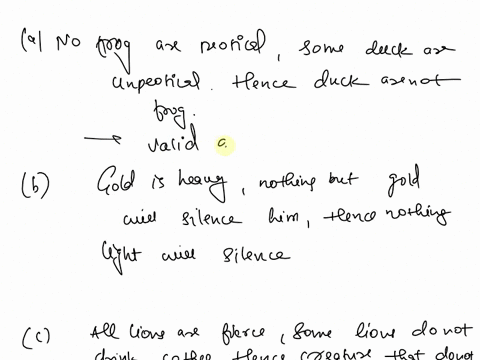 (a) No frog are peotical, some duck are
unpeotical. Hence duck are not
frog.
→ valid a
(b) Gold is heavy, nothing but gold
will silence him, thence nothing
light will silence
(c) All lions are fierce, some lions do not
drink coffee. Hence creature that do not